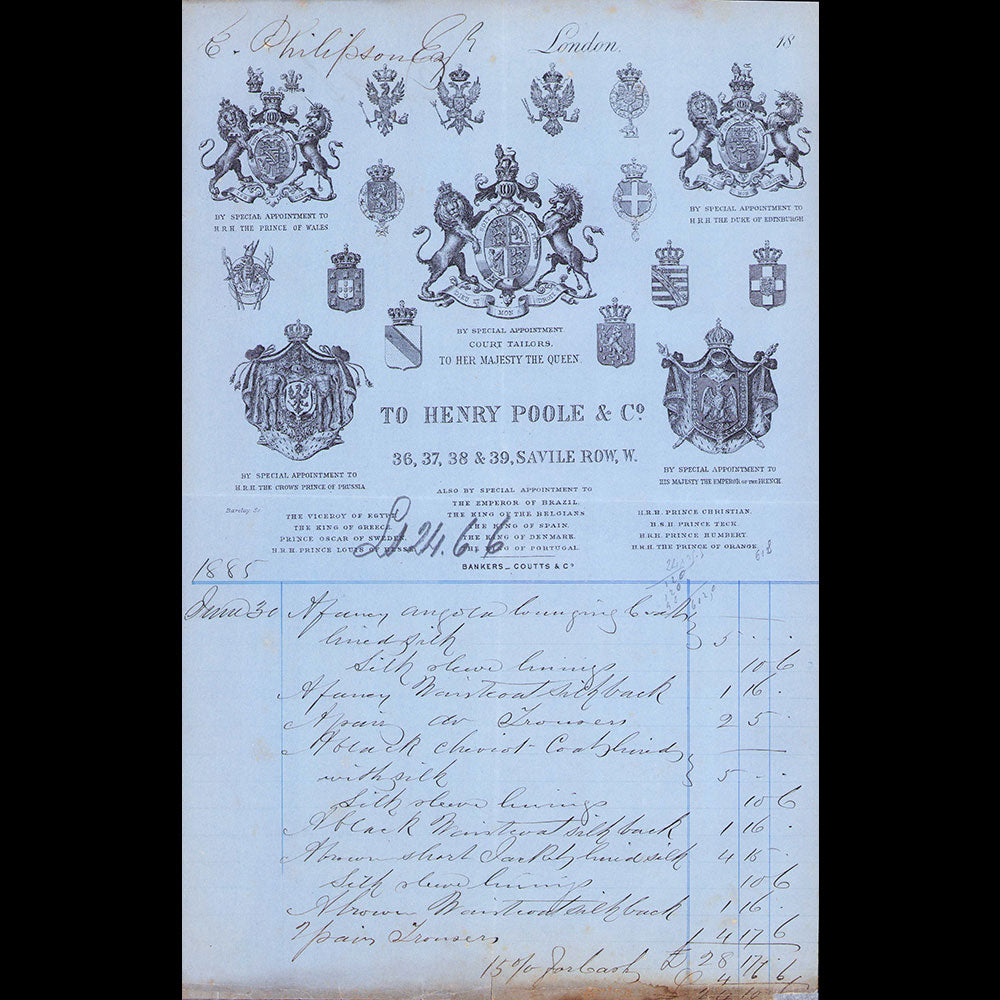 E. Philipson Esqr
London, 18
BY SPECIAL APPOINTMENT TO
H.R.H. THE PRINCE OF WALES
BY SPECIAL APPOINTMENT TO
H R H THE DUKE OF EDINBURGH
DIEU ET MON DROIT
BY SPECIAL APPOINTMENT
COURT TAILORS,
TO HER MAJESTY THE QUEEN.
TO HENRY POOLE & Co
36, 37, 38 & 39, SAVILE ROW, W.
BY SPECIAL APPOINTMENT TO
H.R.H. THE CROWN PRINCE OF PRUSSIA
BY SPECIAL APPOINTMENT TO
HIS MAJESTY THE EMPEROR OF THE FRENCH
ALSO BY SPECIAL APPOINTMENT TO
THE EMPEROR OF BRAZIL.
THE KING OF THE BELGIANS
THE KING OF SPAIN.
THE KING OF DENMARK.
THE KING OF PORTUGAL.
Barclay. Sc
THE VICEROY OF EGYPT
THE KING OF GREECE.
PRINCE OSCAR OF SWEDEN.
H.R.H. PRINCE LOUIS OF HESSE.
H.R.H. PRINCE CHRISTIAN.
H.S.H PRINCE TECK.
H.R.H PRINCE HUMBERT.
H.R.H. THE PRINCE OF ORANGE.
£24.6.6
BANKERS _ COUTTS & Co
1885
June 30 A fancy angola lounging Coat
lined silk 5 . .
Silk sleeve linings 10 6
A fancy Waistcoat silk back 1 16 .
A pair do Trousers 2 5 .
A black cheviot Coat lined
with silk 5 . .
Silk sleeve linings 10 6
A black Waistcoat silk back 1 16 .
A brown short Jacket lined silk 4 15 .
Silk sleeve linings 10 6
A brown Waistcoat silk back 1 16 .
2 pairs Trousers 4 17 6
£ 28 17
15% for Cash 4 6 6